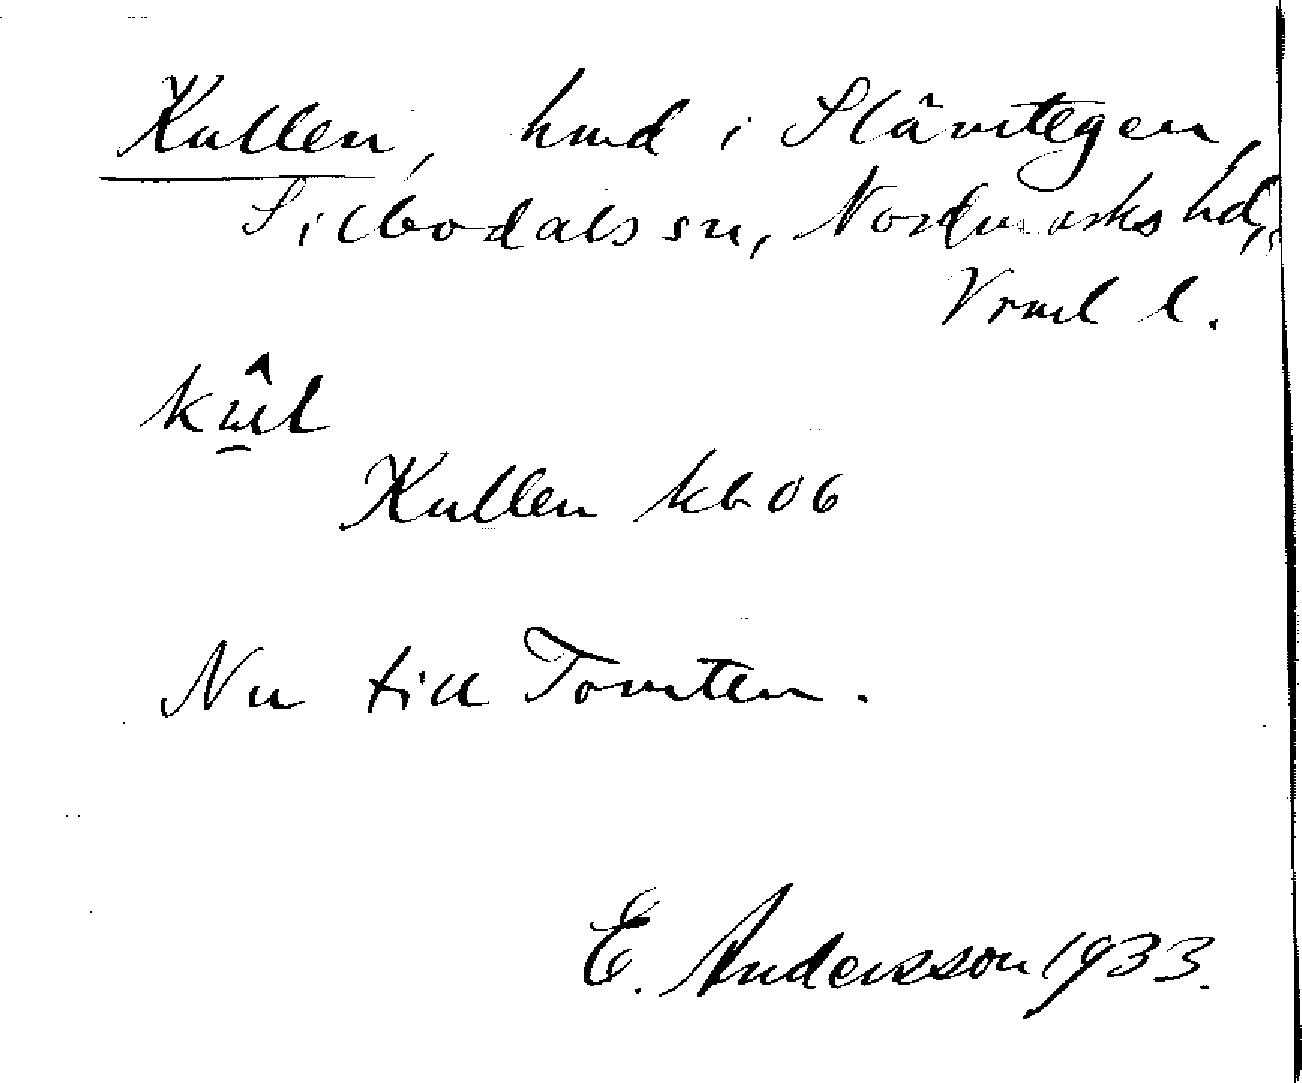 Kullen, hmd i Slämtegen,
Silbodals sn, Nordmarks hd,
Vrml l.
kûl
Kullen kb 06
Nu till Tomten.
E. Andersson 1933.